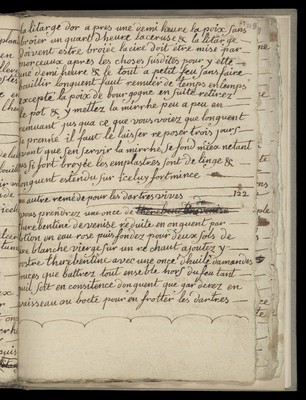 la litarge dor apres une demi heure la poix sans
broier un quart dheure la ceruse & la litarge
doivent estre broiée la cire doit étre mise par
morceaux apres les choses susdites pour y ette
une demi heure & le tout a petit feu sans faire
bouillir longuent faut remuer de temps en temps
excepté la poix de bourgogne en suite retirez
le pot & y mettez la mirrhe peu a peu en
remuant jus qua ce que vous voiez que longuent
se prenne il faut le laisser reposer trois jours
avant que sen servir la mirrhe se fond mieux nelant
si fort broyée les emplastres sont de linge &
onguent estendu sur icelux fort mince
autre remede pour les dartres vives 122
vous prendrez une once de
therebentine de venise reduite en onguent par
lotion en eau rose puis fondez pour deux sols de
cire blanche vierge sur un rechaut ajoutez y
votre therebentine avec une once dhuile damandes
douces que battrez tout ensemble hors du feu tant
quil soit en consistence donguent que garderez en
vaisseau ou boete pour en frotter les dartres